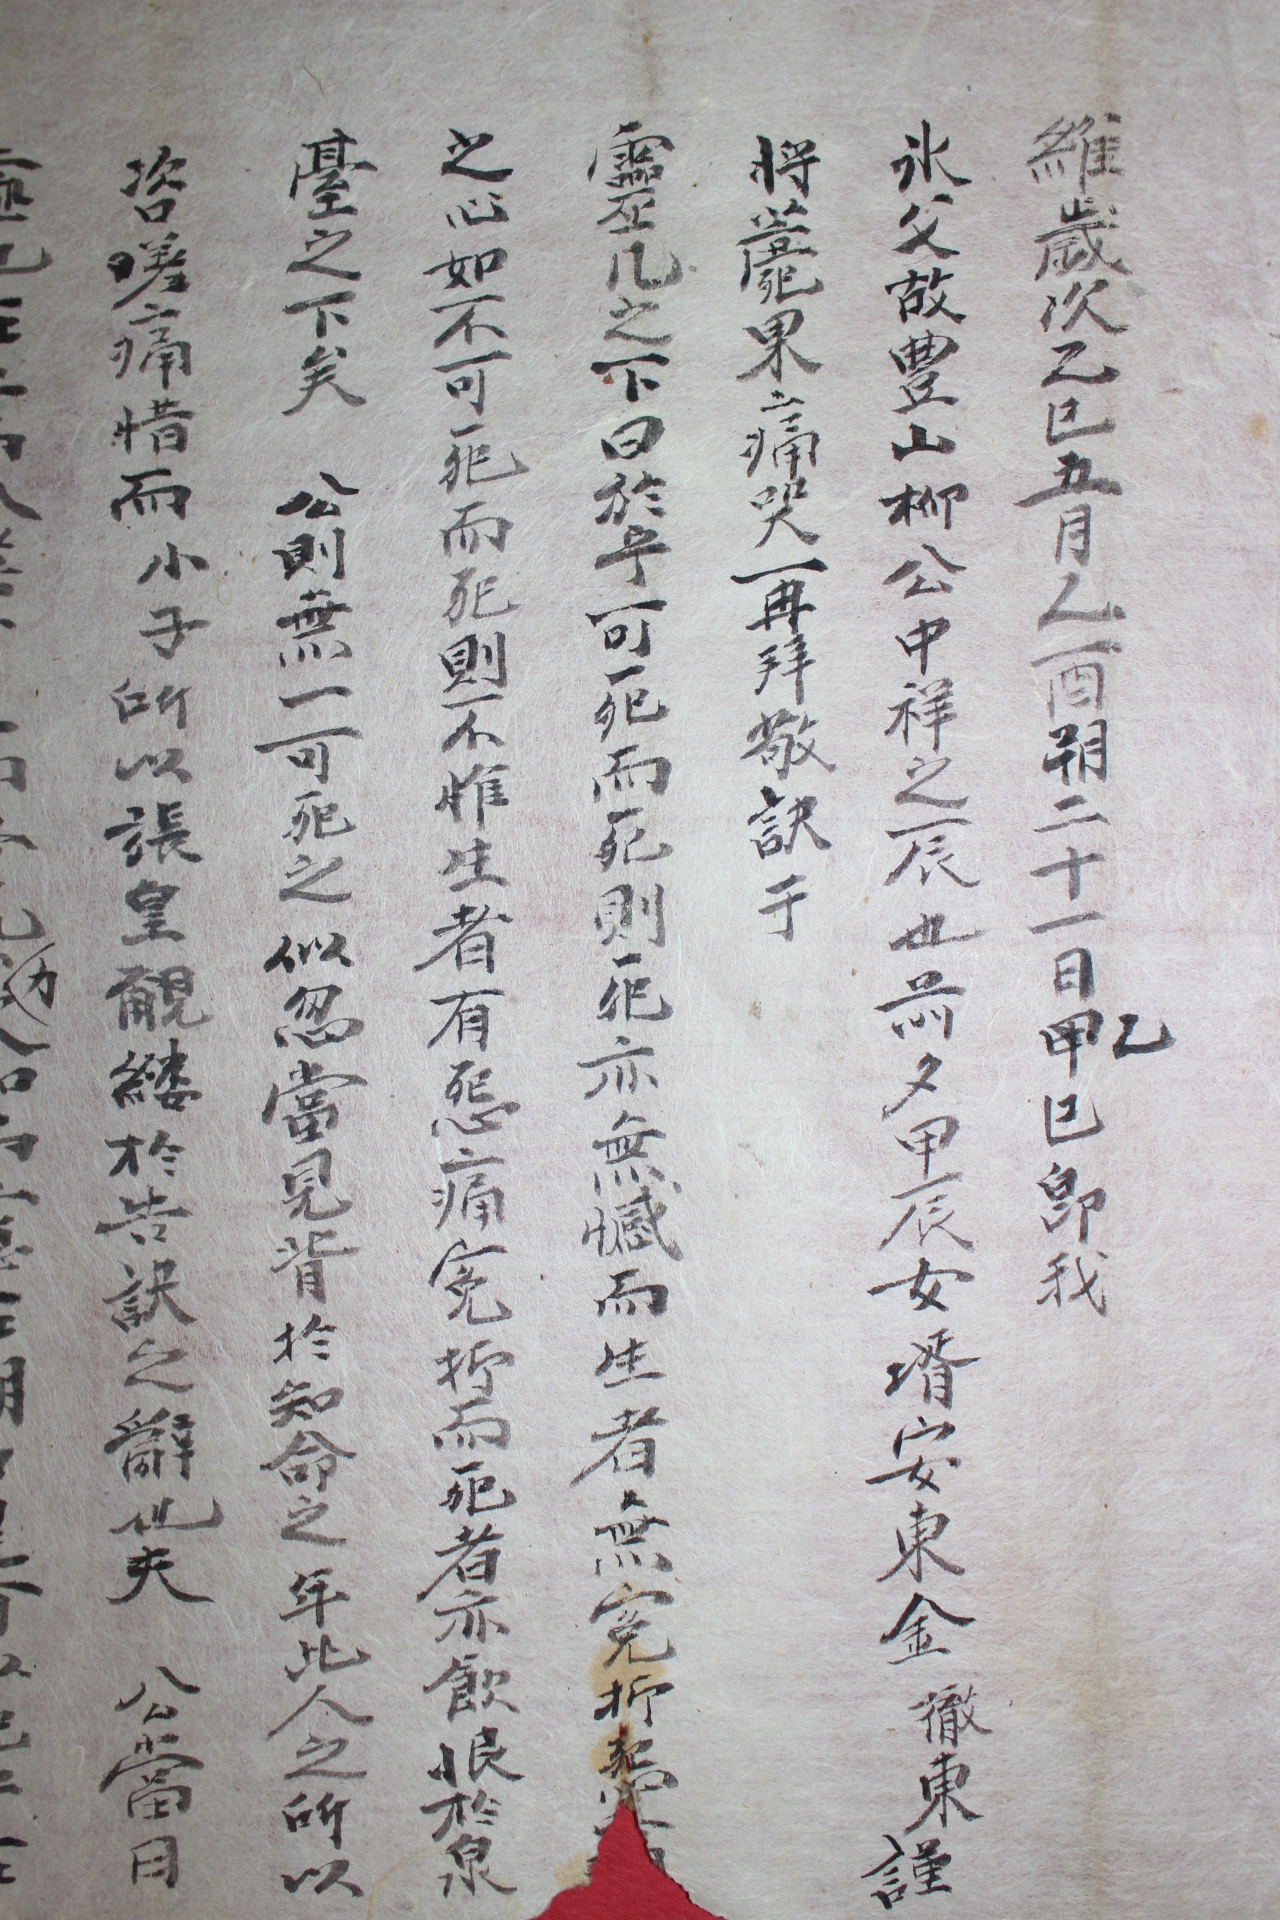 維歲次乙巳五月乙酉朔二十一日甲乙巳卽我
氷父故豊山柳公中祥之辰也前夕甲辰女壻安東金徹東謹
將薨果痛哭再拜敬訣于
靈座几之下曰於乎可死而死則死亦無憾而生者無冤抑怨
之心如不可死而死則不惟生者有怨痛冤抑而死者亦飮恨於泉
臺之下矣 公則無一可死之似忽當見背於知命之年此人之所以
咨嗟痛惜而小子所以張皇覶縷於告訣之辭也夫 公當日